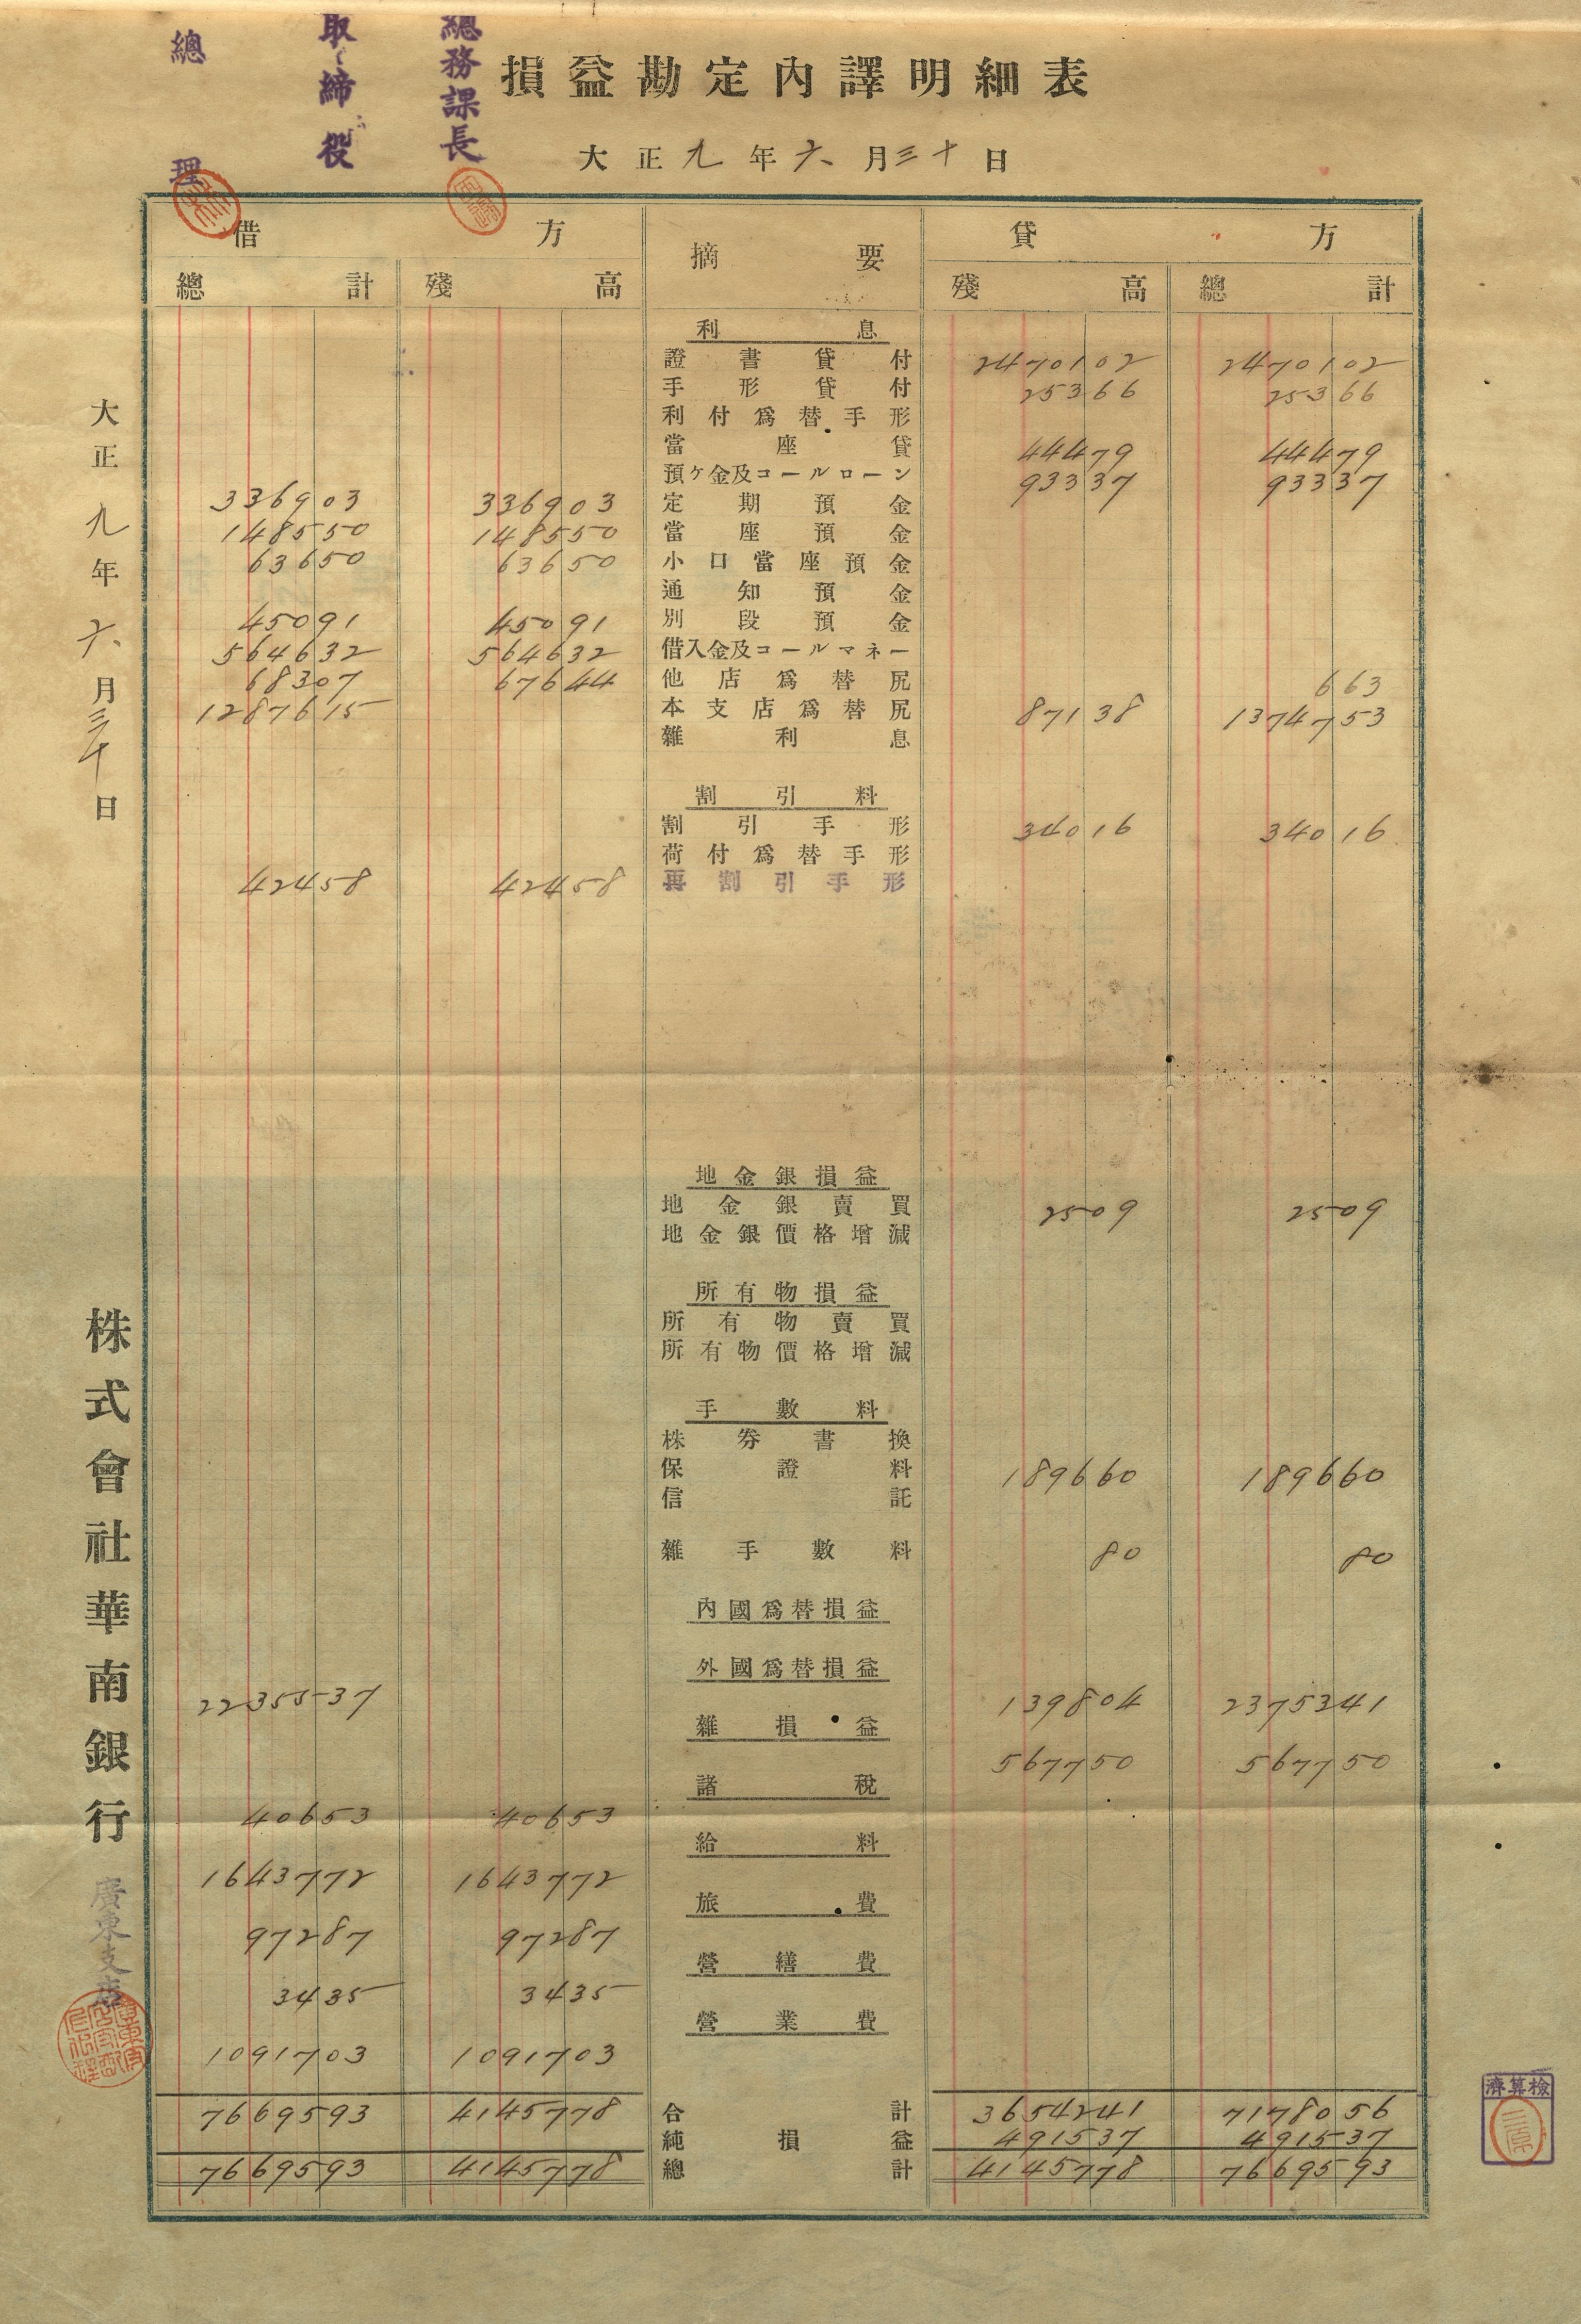 總務課長
取締役
總理
損益勘定內譯明細表
大正九年六月三十日
借方 摘要 貸方
總計 殘高 殘高 總計
利息
證書貸付 2470102 2470102
手形貸付 25366 25366
利付爲替手形
當座貸 44479 44479
預ケ金及コールローン 93337 93337
336903 336903 定期預金
148550 148550 當座預金
63650 63650 小口當座預金
通知預金
45091 45091 別段預金
564632 564632 借入金及コールマネー
68307 67644 他店爲替尻 663
1287615 本支店爲替尻 87138 1374753
雜利息
割引料
割引手形 34016 34016
荷付爲替手形
42458 42458 再割引手形
地金銀損益
地金銀賣買 2509 2509
地金銀價格增減
所有物損益
所有物賣買
所有物價格增減
手數料
株券書換
保證料 189660 189660
信託
雜手數料 80 80
內國爲替損益
外國爲替損益
2235537 139804 2375341
雜損益
567750 567750
諸稅
40653 40653
給料
1643772 1643772
旅費
97287 97287
營繕費
3435 3435
營業費
1091703 1091703
7669593 4145778 合計 3654241 7178056
純損益 491537 491537
7669593 4145778 總計 4145778 7669593
大正九年六月三十日
株式會社華南銀行廣東支店
檢算濟
三原